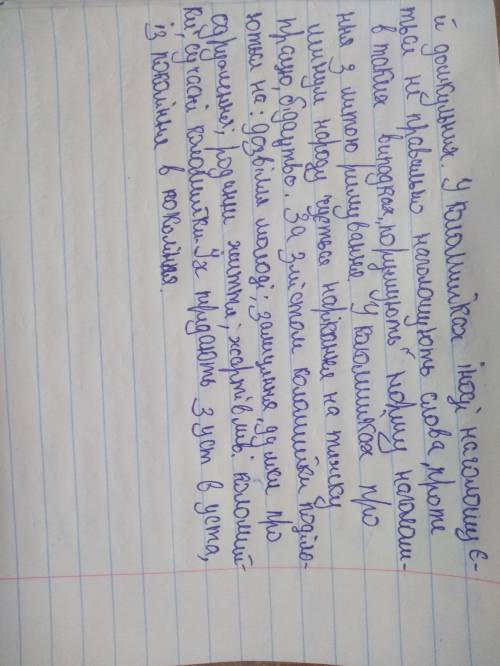 й дошкуляння. У коломийках іноді наголошує-
ться не правельно наголошують слова, проте
в таких випадках, порушують норму наголош-
ння з метою римування. У коломийках про
минуле народу чується нарікання на тяжку
працю, бідацтво. За змістом коломийки поділя-
ються на: дозвілля молоді; замилування, думки про
одруження; родинне життя; жартівливі коломий-
ки; сучасні коломийки. Їх придають з уст в уста,
із покоління в покоління.